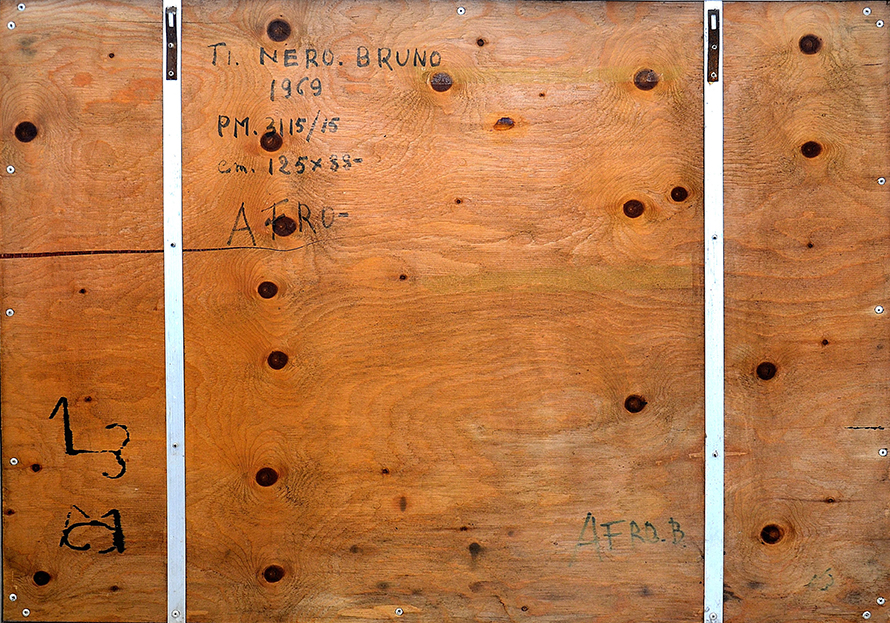 TI. NERO. BRUNO
1969
PM. 3115/15
cm. 125×88=
AFRO=
AFRO. B.